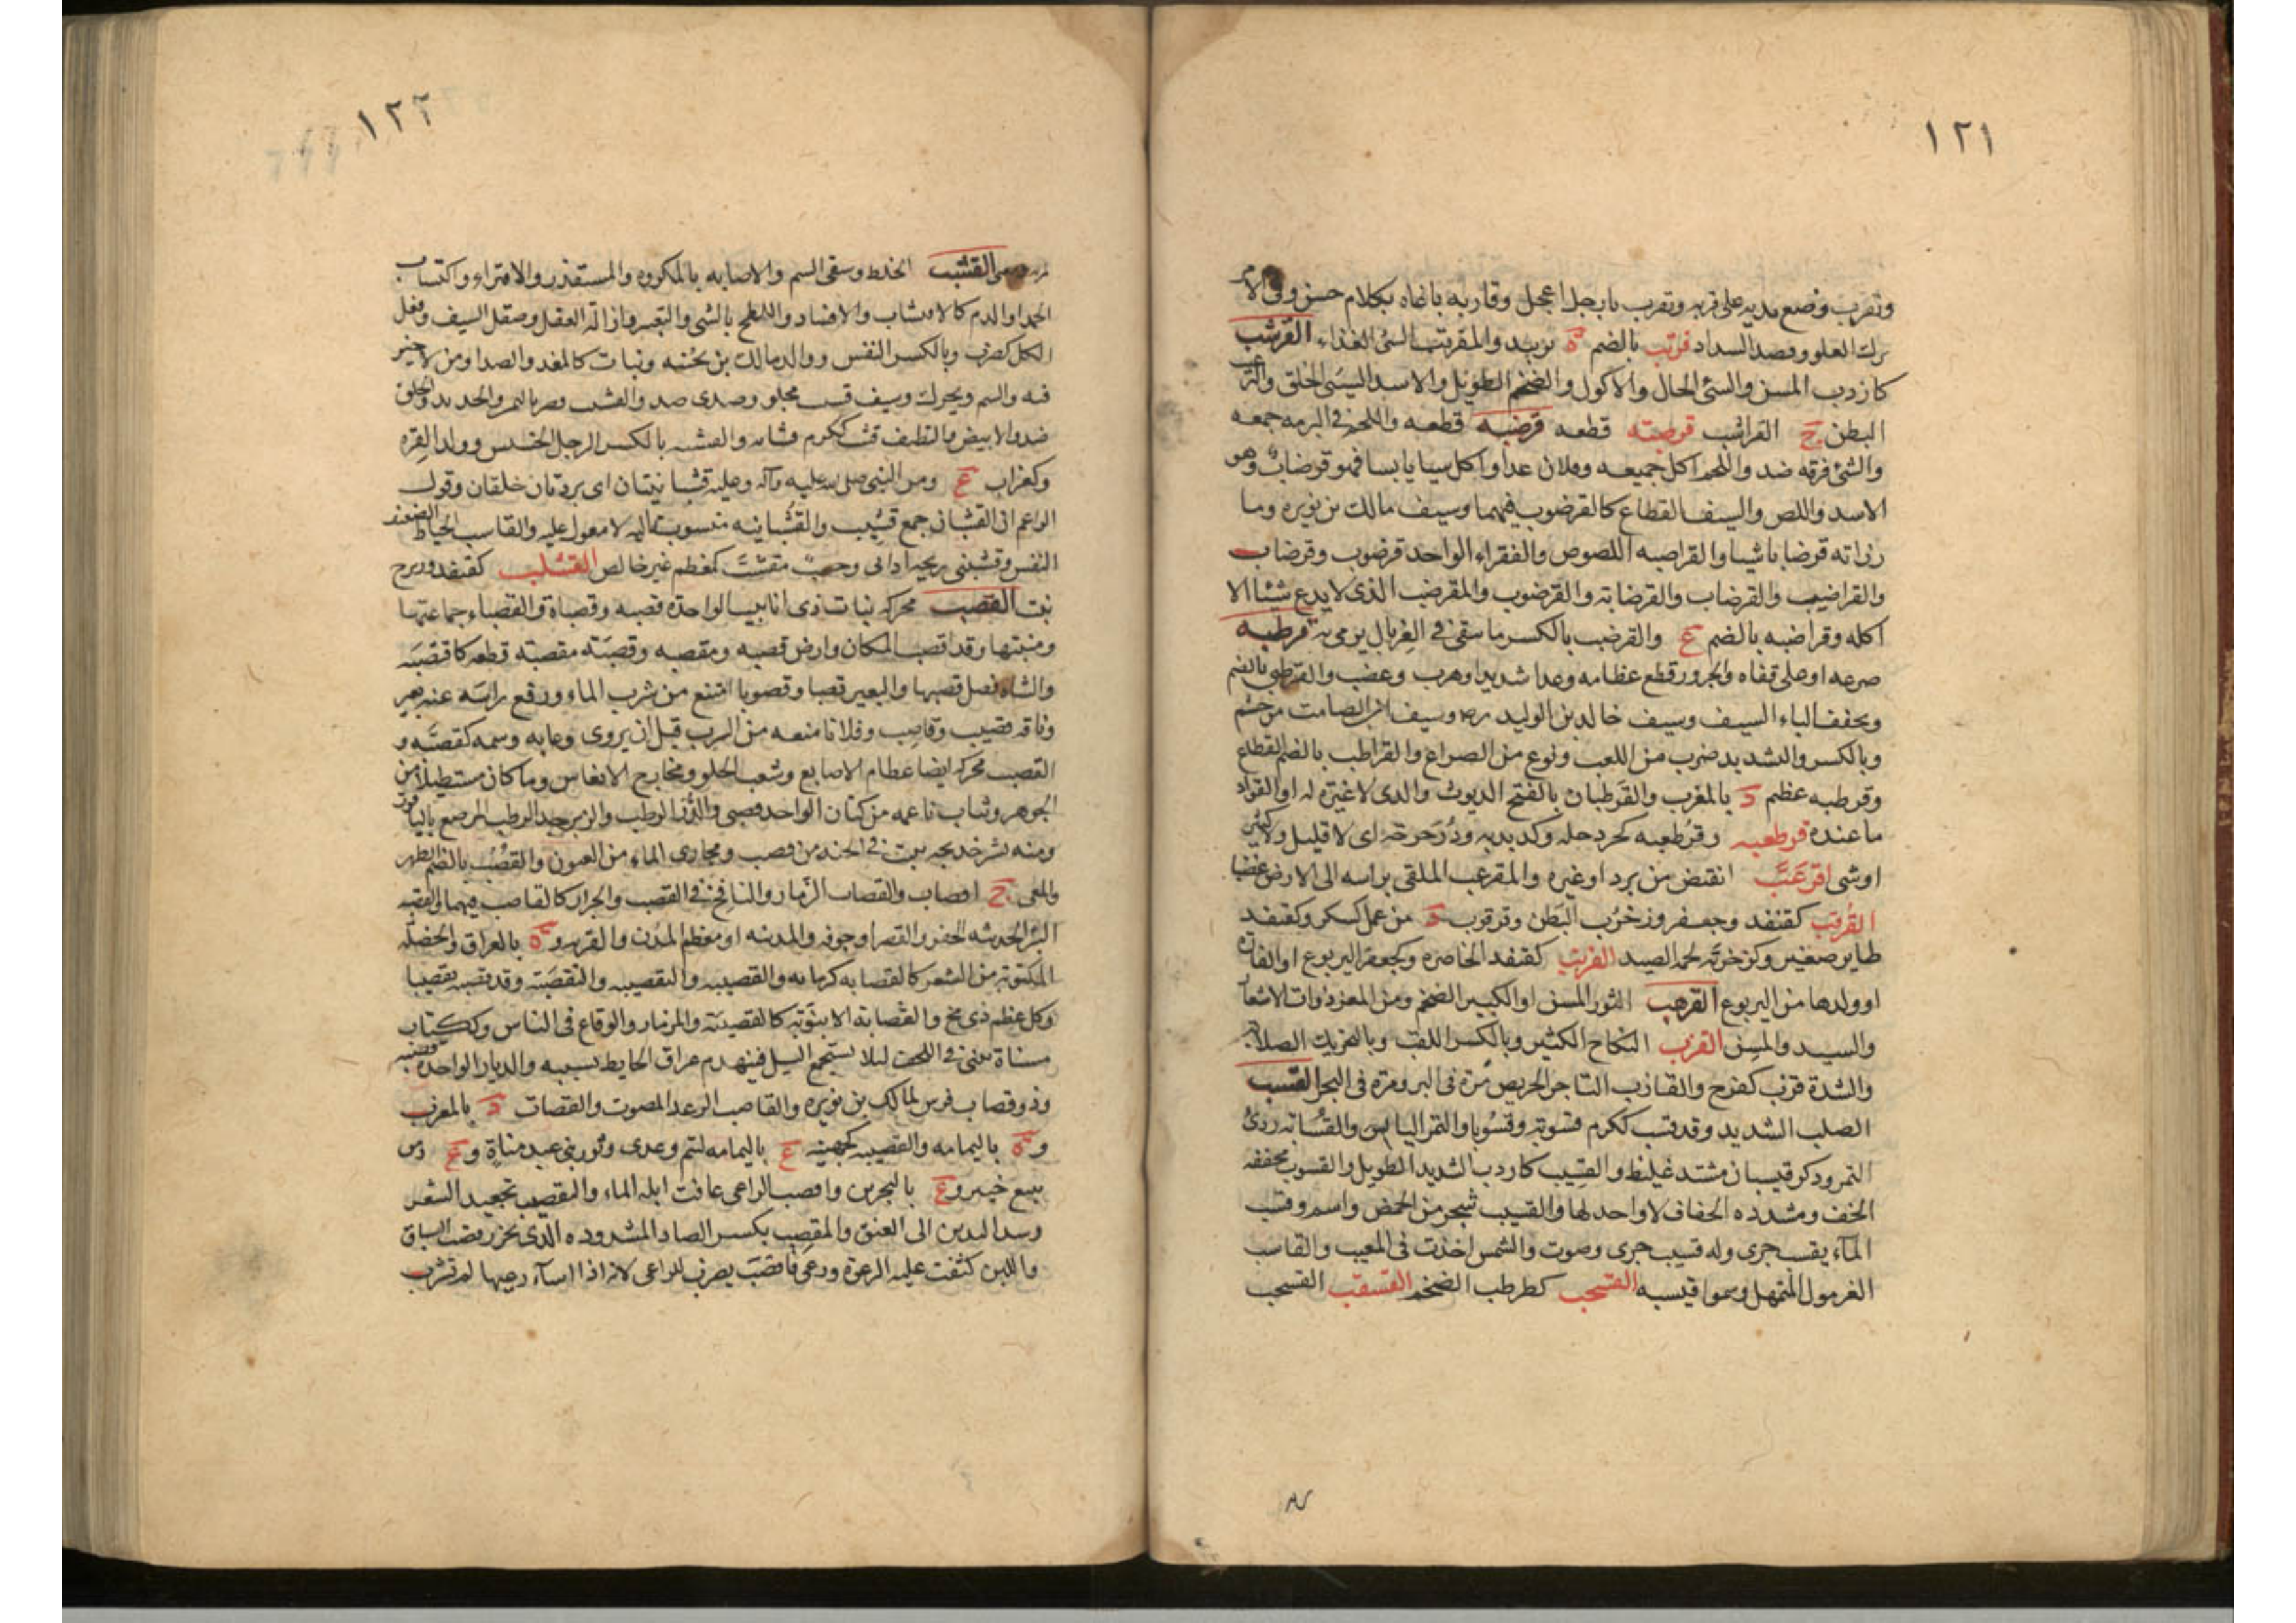 ١٢١
وتقرب وضع يديه على قربه وتقرب يا رجل اعجل وقاربه ناغاه بكلام حسن وفى الامر
ترك الغلو وقصد السداد قرتب بالضم ة بزبيد والمقرتب السئ الغذاء القرشب
كاردب المسن والسئ الحال والاكول والضخم الطويل والاسد السيئ الخلق والرغيب
البطن ج القراشب قرصبه قطعه قرضبه قطعه واللحم فى البرمه جمعه
والشئ فرقه ضد واللحم اكل جميعه وفلان عدا واكل شيا يابسا فهو قرضاب وهو
الاسد واللص والسيف القطاع كالقرضوب فيهما وسيف مالك بن نويره وما
رزاته قرضابا شيا والقراضبه اللصوص والفقراء الواحد قرضوب وقرضاب
والقراضيب والقرضاب والقرضابه والقرضوب والمقرضب الذى لا يدع شيئا الا
اكله وقراضبه بالضم ع والقرضب بالكسر ما يبقى فى الغربال يرمى به قرطبه
صرعه او على قفاه والجزور قطع عظامه وعدا شديدا وهرب وغضب والقرطبى بالضم
ويخفف الباء السيف وسيف خالد بن الوليد رضه وسيف ابن الصامت من جشم
وبالكسر والتشديد ضرب من اللعب ونوع من الصراع والقراطب بالضم القطاع
وقرطبه عظم د بالمغرب والقرطبان بالفتح الديوث والذى لا غيره له او القواد
ما عنده قرطعبه وقرطعبه كجردحله وكذبذبه وذرحرحه اى لا قليل ولا كثير
او شى اقرعب انقبض من برد او غيره والمقرعب الملقى براسه الى الارض غضبا
القرقب كقنفد وجعفر وزخزب البطن وقرقوب د من عمل كسكر وكقنفد
طاير صغير وكزخربه لحم الصيد القرنب كقنفد الخاصره وكجعفر اليربوع او الفاره
او ولدها من اليربوع القرهب الثور المسن او الكبير الضخم ومن المعز ذوات الاشعار
والسيد والمسن القزب النكاح الكثير وبالكسر اللقب وبالتحريك الصلابه
والشدة قزب كفرح والقازب التاجر الحريص مرة فى البر ومرة فى البحر القسب
الصلب الشديد وقد قسب ككرم قسوبة وقسوبا والتمر اليابس والقسابه ردئ
التمر وذكر قيسبان مشتد غليظ والقسيب كاردب الشديد الطويل والقسوب مخففه
الخف ومشدده الخفاف لا واحد لها والقيسب شجر من الحمض واسم وقسب
الماء يقسب جرى وله قسيب جرى وصوت والشمس اخذت فى المغيب والقاسب
الغرمول المتمهل وسموا قيسبه القسحب كطرطب الضخم القسقب القسحب
١٢٢
القشب الخلط وسقى السم والاصابه بالمكروه والمستقذر والافتراء واكتساب
الحمد او الذم كالاقتشاب والافساد واللطخ بالشى والتعيير وازالة العقل وصقل السيف وفعل
الكل كضرب وبالكسر النفس ووالد مالك بن بحينه ونبات كالمغد والصدا ومن لا خير
فيه والسم ويحرك وسيف قشيب مجلو وصدى ضد والقشب قصر باليمن والجديد والخلق
ضد والابيض والنظيف قشب ككرم قشابه والقشبه بالكسر الرجل الخسيس وولد القرد
وكغراب ع ومر النبى صلى الله عليه وآله وعليه قشبانيتان اى بردتان خلقان وقول
الزاعم ان القشبان جمع قشيب والقشبانيه منسوبة اليه لا معول عليه والقاشب الخياط الضعيف
النفس وقشبنى ريحه اذانى وحسب مقشب كمعظم غير خالص القشلب كقنفد وزبرج
نبت القصب محركه نبات ذى انابيب الواحدة قصبه وقصباة والقصباء جماعتها
ومنبتها وقد اقصب المكان وارض قصبه ومقصبه وقصبه مقصبة قطعه كاقتصبه
والشاه فصل قصبها والبعير قصبا وقصوبا امتنع من شرب الماء ورفع راسه عنه بعير
وناقه قصيب وقاصب وفلانا منعه من الشرب قبل ان يروى وعابه وشمه كقصبه و
القصب محركه ايضا عظام الاصابع وشعب الحلق ومخارج الانفاس وما كان مستطيلا من
الجوهر وثياب ناعمه من كتان الواحد قصبى والدر الرطب والزبرجد الرطب المرصع بالياقوت
ومنه بشر خديجه ببيت فى الجنه من قصب ومجارى الماء من العيون والقصب بالضم الظهر
والمعى ج اقصاب والقصاب الزمار والنافخ فى القصب والجزار كالقاصب فيهما والقصبه
البئر الحديثه الحفر والقصر او جوفه والمدينه او معظم المدن والقريه و ة بالعراق والخصله
الملتويه من الشعر كالقصابه كرمانه والقصيبه والتقصيبه والتقصبة وقد قصبه تقصيبا
وكل عظم ذى مخ والقصابه الانبوبه كالقصيبه والمزمار والوقاع فى الناس وككتاب
مسناة تبنى فى اللحف ليلا يستجمع السيل فينهدم عراق الحايط بسببه والديار الواحدة قصبه
وذو قصاب فرس لمالك بن نويره والقاصب الرعد المصوت والقصبات د بالمغرب
و ة باليمامه والقصيبه كجهينه ع باليمامه لتيم وعدى وثور بنى عبد مناة و ع بين
ينبع خيبر و ع بالبحرين واقصب الراعى عافت ابله الماء والتقصيب تجعيد الشعر
وشد اليدين الى العنق والمقصب بكسر الصاد المشدوده الذى يحرز قصب السباق
واللبن كثفت عليه الرغوة ورعى فاقصب يضرب للراعى لانه اذا اساء رعيها لم تشرب